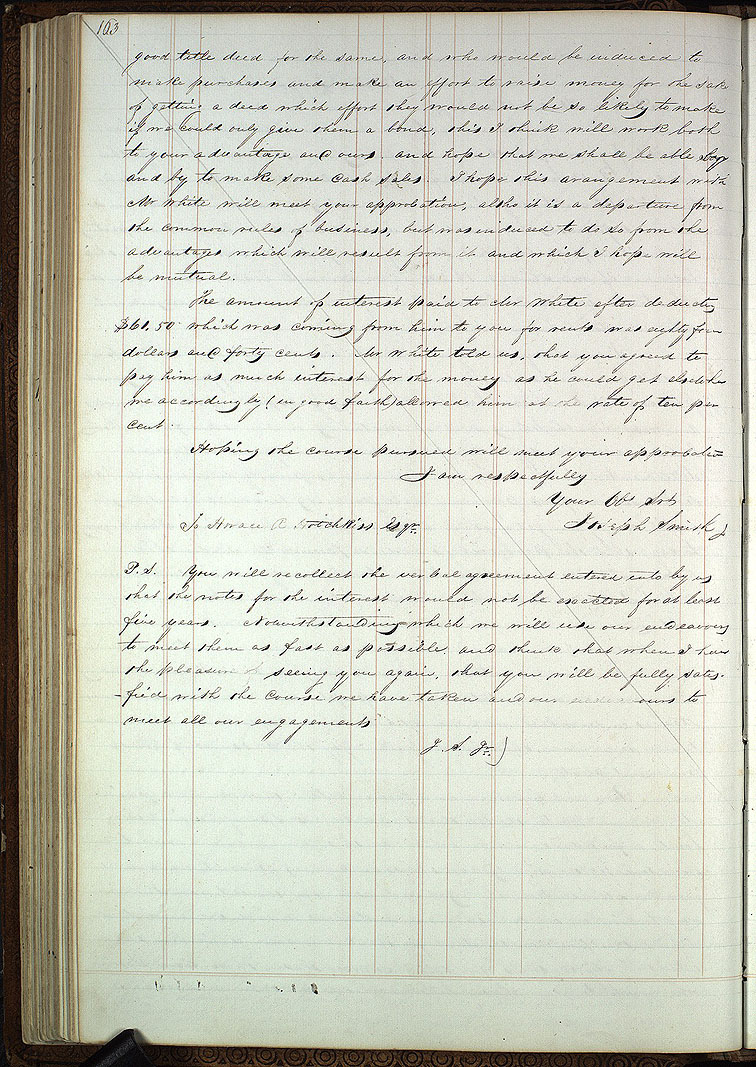 103
good title deed for the same, and who would be induced to
make purchases and make an effort to raise money for the sake
of getting a deed which effort they would not be so likely to make
if we could only give them a bond, this I think will work both
to your advantage and ours. and hope that we shall be able by
and by to make some cash sales. I hope this arangement with
Mr White will meet your approbation, altho it is a departure from
the common rules of business, but was induced to do so from the
advantages which will result from it and which I hope will
be mutual.
The amount of interest paid to Mr White after deducting
$61,50 which was coming from him to you for rents was eighty four
dollars and forty cents. Mr White told us, that you agreed to
pay him as much interest for the money as he could get elsewhere
we accordingly (in good faith) allowed him at the rate of ten per
cent
Hoping the course pursued will meet your approbation
I am respectfully
Your Obt Svt
To Horace R. Hotchkiss Esqr.
Joseph Smith J
P.S. You will recollect the verbal agreement entered into by us
that the notes for the interest would not be exacted for at least
five years. Nowithstanding which we will use our endeavors
to meet them as fast as possible, and think that when I have
the pleasure of seeing you again, that you will be fully satis-
-fied with the course we have taken and our endeavours to
meet all our engagements
J. S. Jr.)